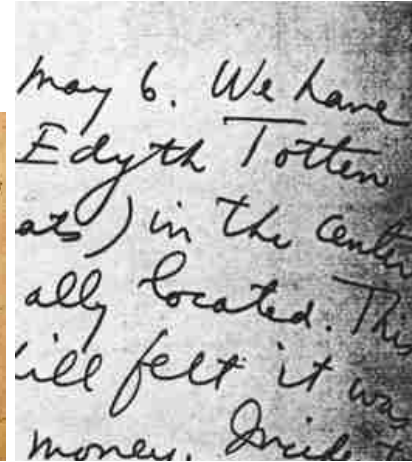 May 6. We have
Edyth Totten
ats) in the center
ally located. This
ill felt it was
money. Inside t